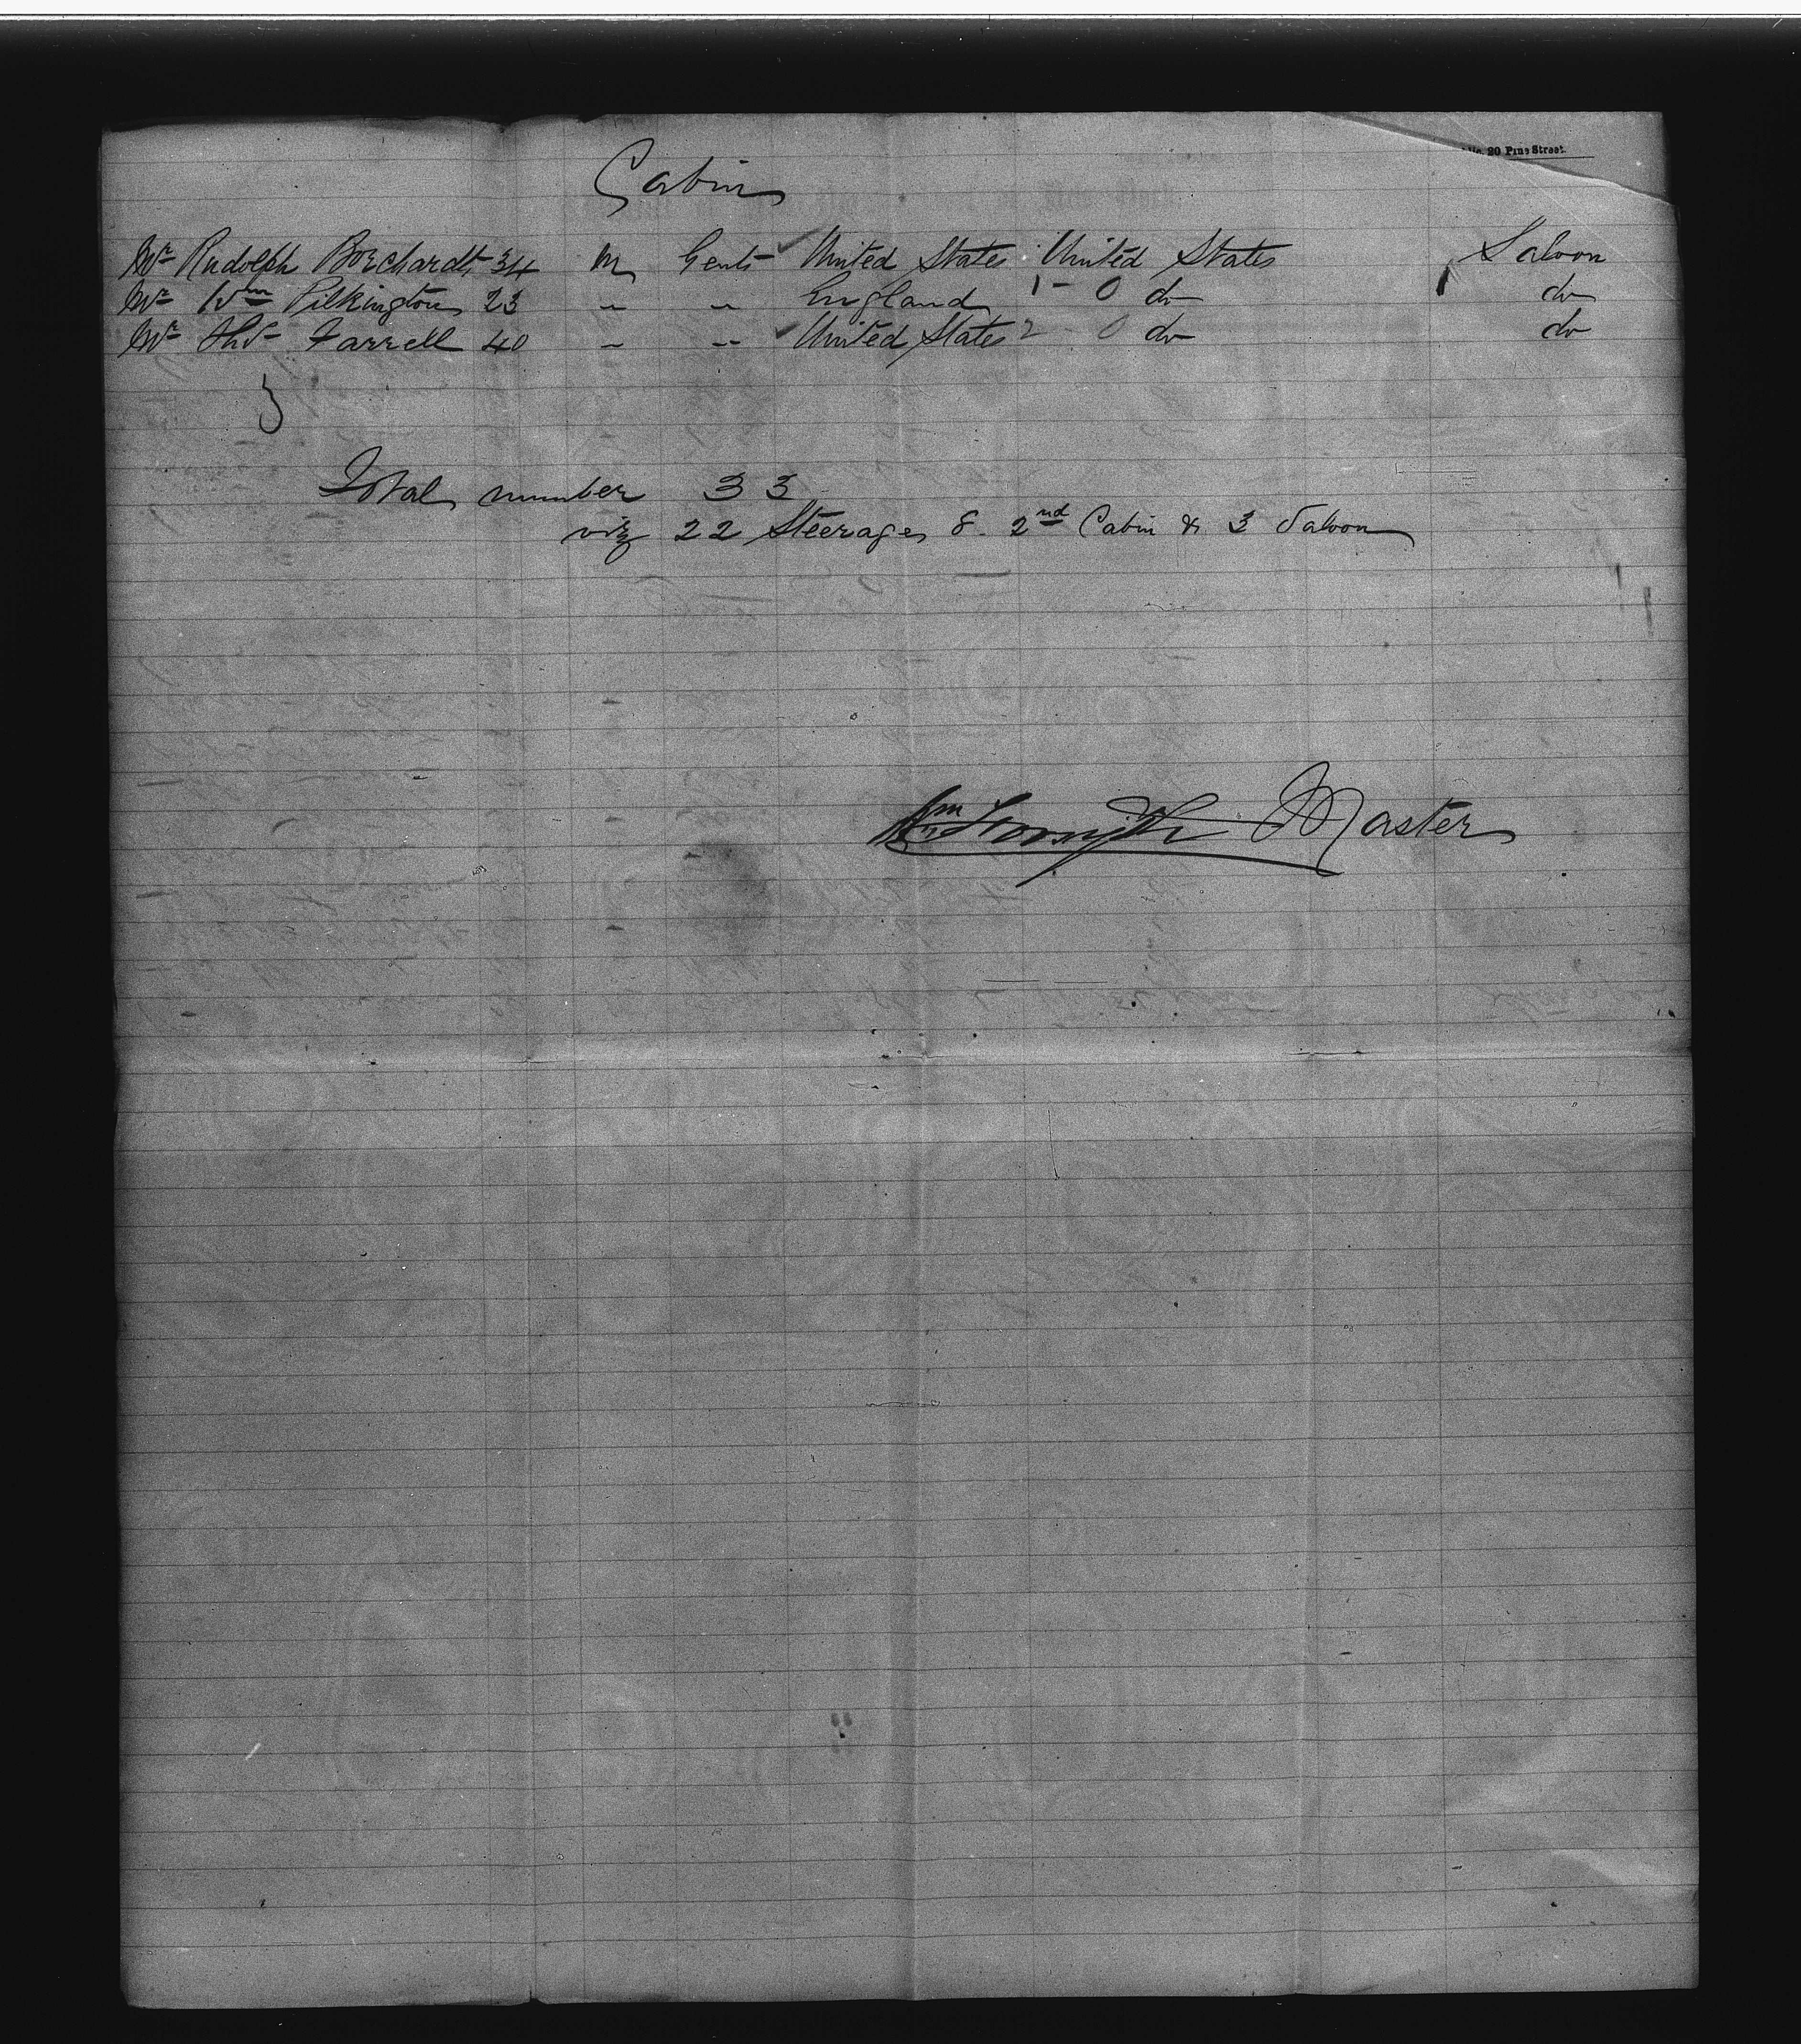 No. 20 Pine Street.
Cabin
Mr Rudolph Borchardt 34 m Gents ✓ United States United States Saloon
Mr Wm Pilkington 23 " " England 1 - 0 do 1 do
Mr Thos Farrell 40 " " ✓ United States 2 - 0 do do
3
Total number 33
viz 22 Steerage, 8. 2nd Cabin & 3 Saloon
Wm Forsyth Master